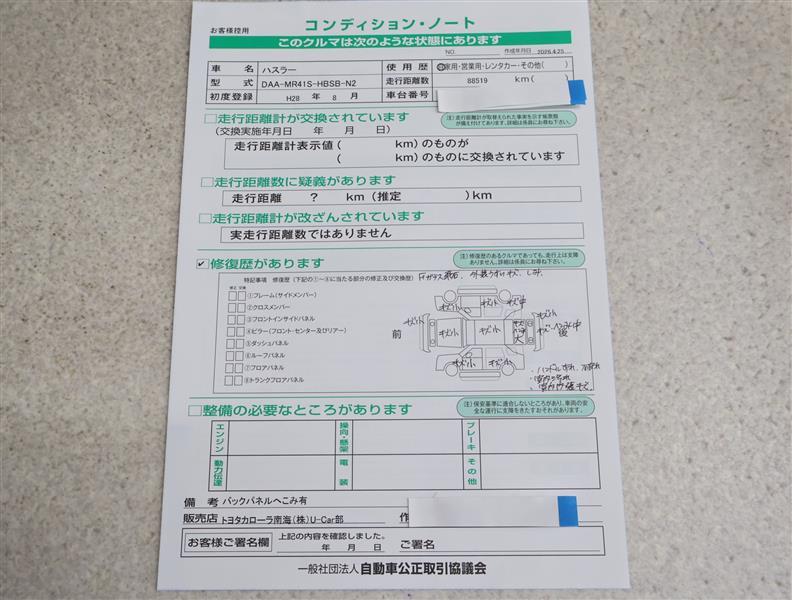 お客様控用
コンディション・ノート
このクルマは次のような状態にあります
NO.
作成年月日 2026.4.25
車名 ハスラー
使用歴 自家用・営業用・レンタカー・その他( )
型式 DAA-MR41S-HBSB-N2
走行距離数 88519 km( )
初度登録 H28 年 8 月
車台番号
□走行距離計が交換されています
(交換実施年月日 年 月 日)
注)走行距離計が取替えられた事実を示す帳票類が備え付けてあります。詳細は係員にお尋ね下さい。
走行距離計表示値( km)のものが
( km)のものに交換されています
□走行距離数に疑義があります
走行距離 ? km(推定 )km
□走行距離計が改ざんされています
実走行距離数ではありません
☑修復歴があります
注)修復歴のあるクルマであっても、走行上は支障ありません。詳細は係員にお尋ね下さい。
特記事項 修復歴(下記の①〜⑧に当たる部分の修正及び交換歴)
修正 交換
①フレーム(サイドメンバー)
②クロスメンバー
③フロントインサイドパネル
④ピラー(フロント・センター及びリアー)
⑤ダッシュパネル
⑥ルーフパネル
⑦フロアパネル
⑧トランクフロアパネル
前
後
キズ小
キズ小
キズ中
キズ小
キズ小
キズ小
キズ小
キズ小
大
□整備の必要なところがあります
注)保安基準に適合しないところがあり、車両の安全な運行に支障をきたすおそれがあります。
エンジン
操向・懸架
ブレーキ
動力伝達
電装
その他
備考 バックパネルへこみ有
販売店 トヨタカローラ南海(株)U-Car部
作
お客様ご署名欄
上記の内容を確認しました。
年 月 日 ご署名
一般社団法人 自動車公正取引協議会